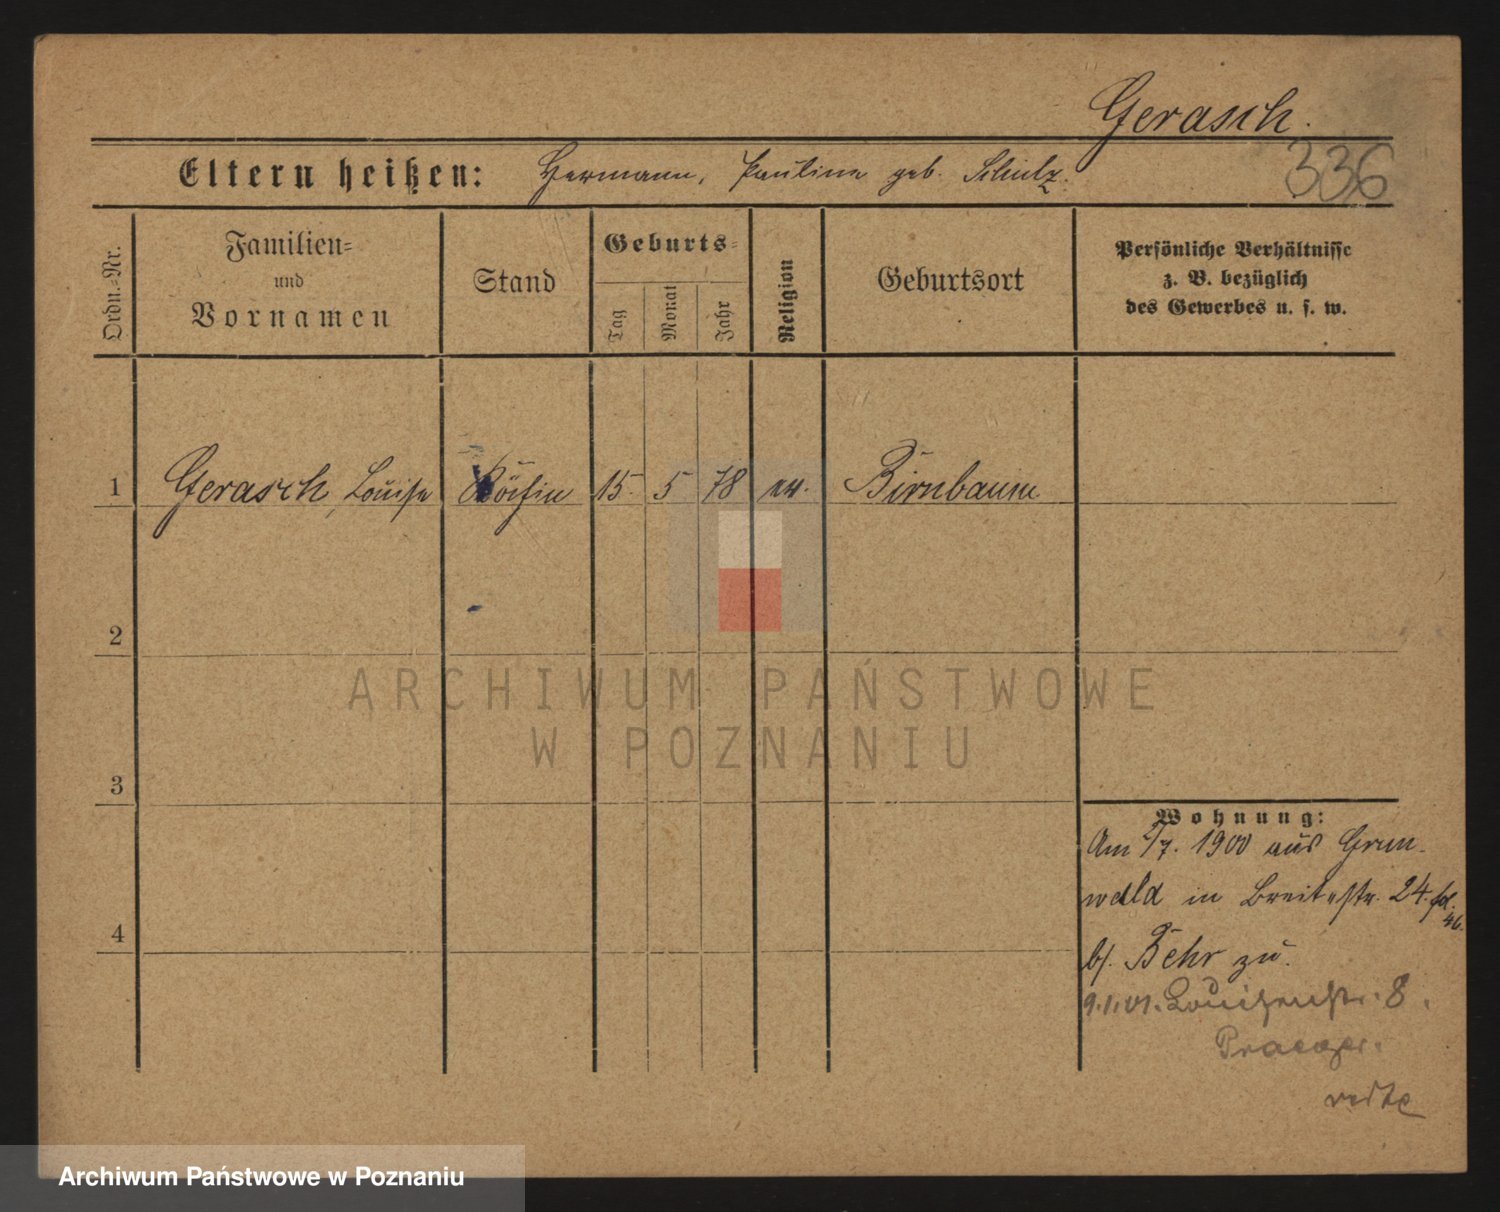 Gerasch.
336
Eltern heißen: Hermann, Pauline geb. Schulz.
Ordn.-Nr.
Familien-
und
Vornamen
Stand
Geburts-
Tag
Monat
Jahr
Religion
Geburtsort
Persönliche Verhältnisse
z. B. bezüglich
des Gewerbes u. s. w.
1 Gerasch, Louise Köchin 15. 5 78 ev. Birnbaum
2
ARCHIWUM PAŃSTWOWE
W POZNANIU
3
4
Wohnung:
Am 7. 1900 aus Grun-
wald in Breitestr. 24.
b/. Behr zu.
9.1.01. Louisenstr. 8.
Archiwum Państwowe w Poznaniu